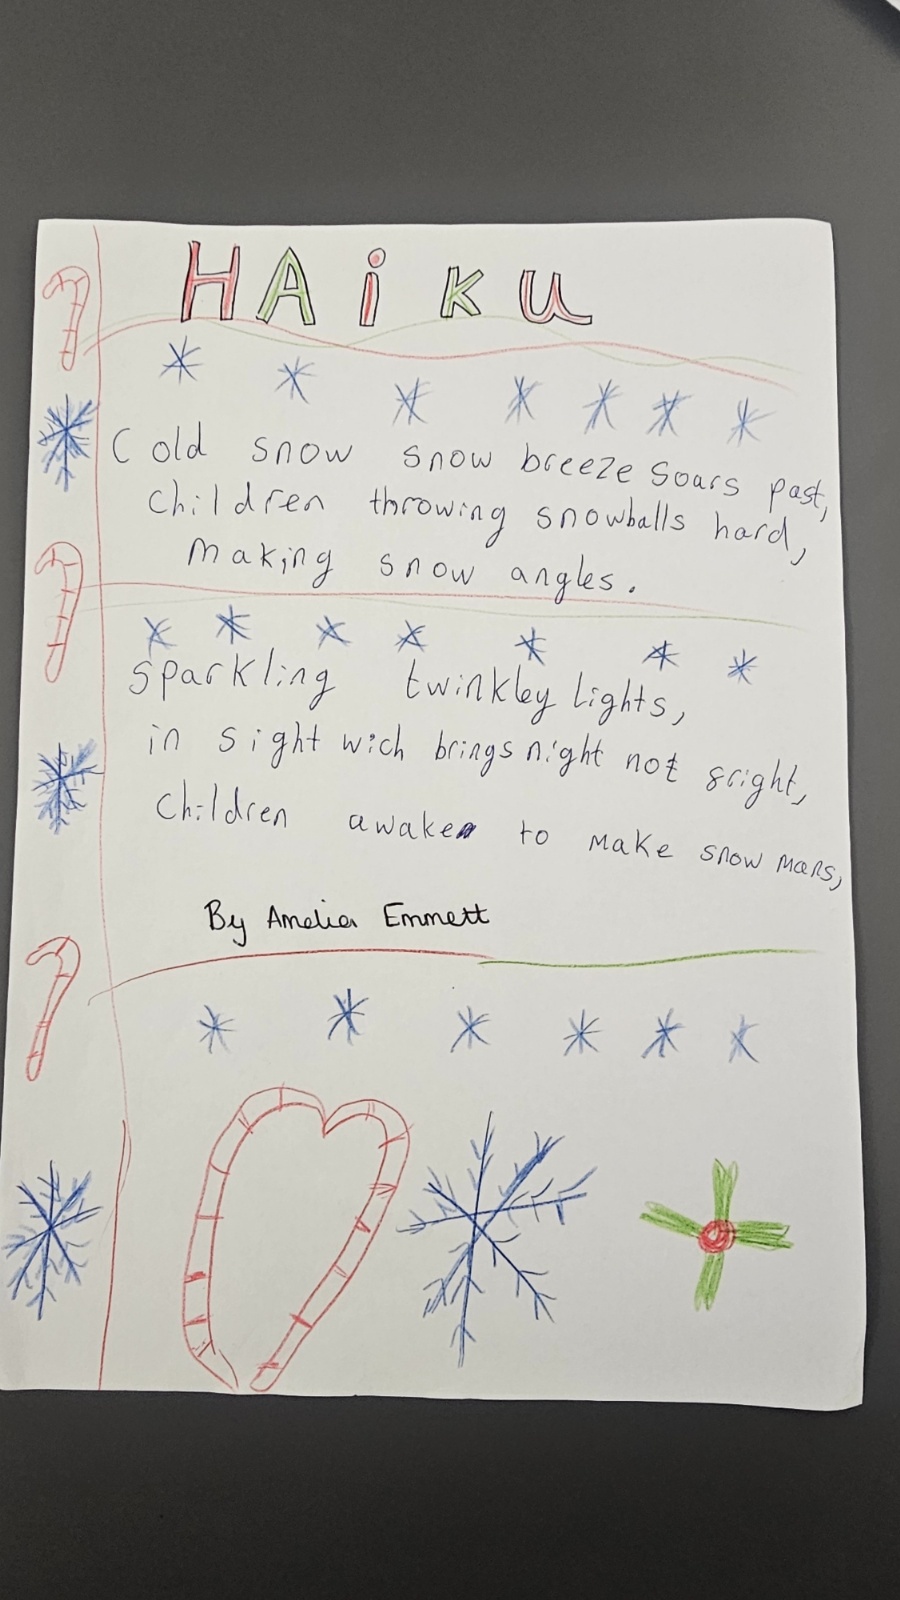 HAiKU
Cold snow snow breeze Soars past,
Children throwing snowballs hard,
Making snow angles.
Sparkling twinkley lights,
in sight wich brings night not gright,
Children awake to make snow mans,
By Amelia Emmett